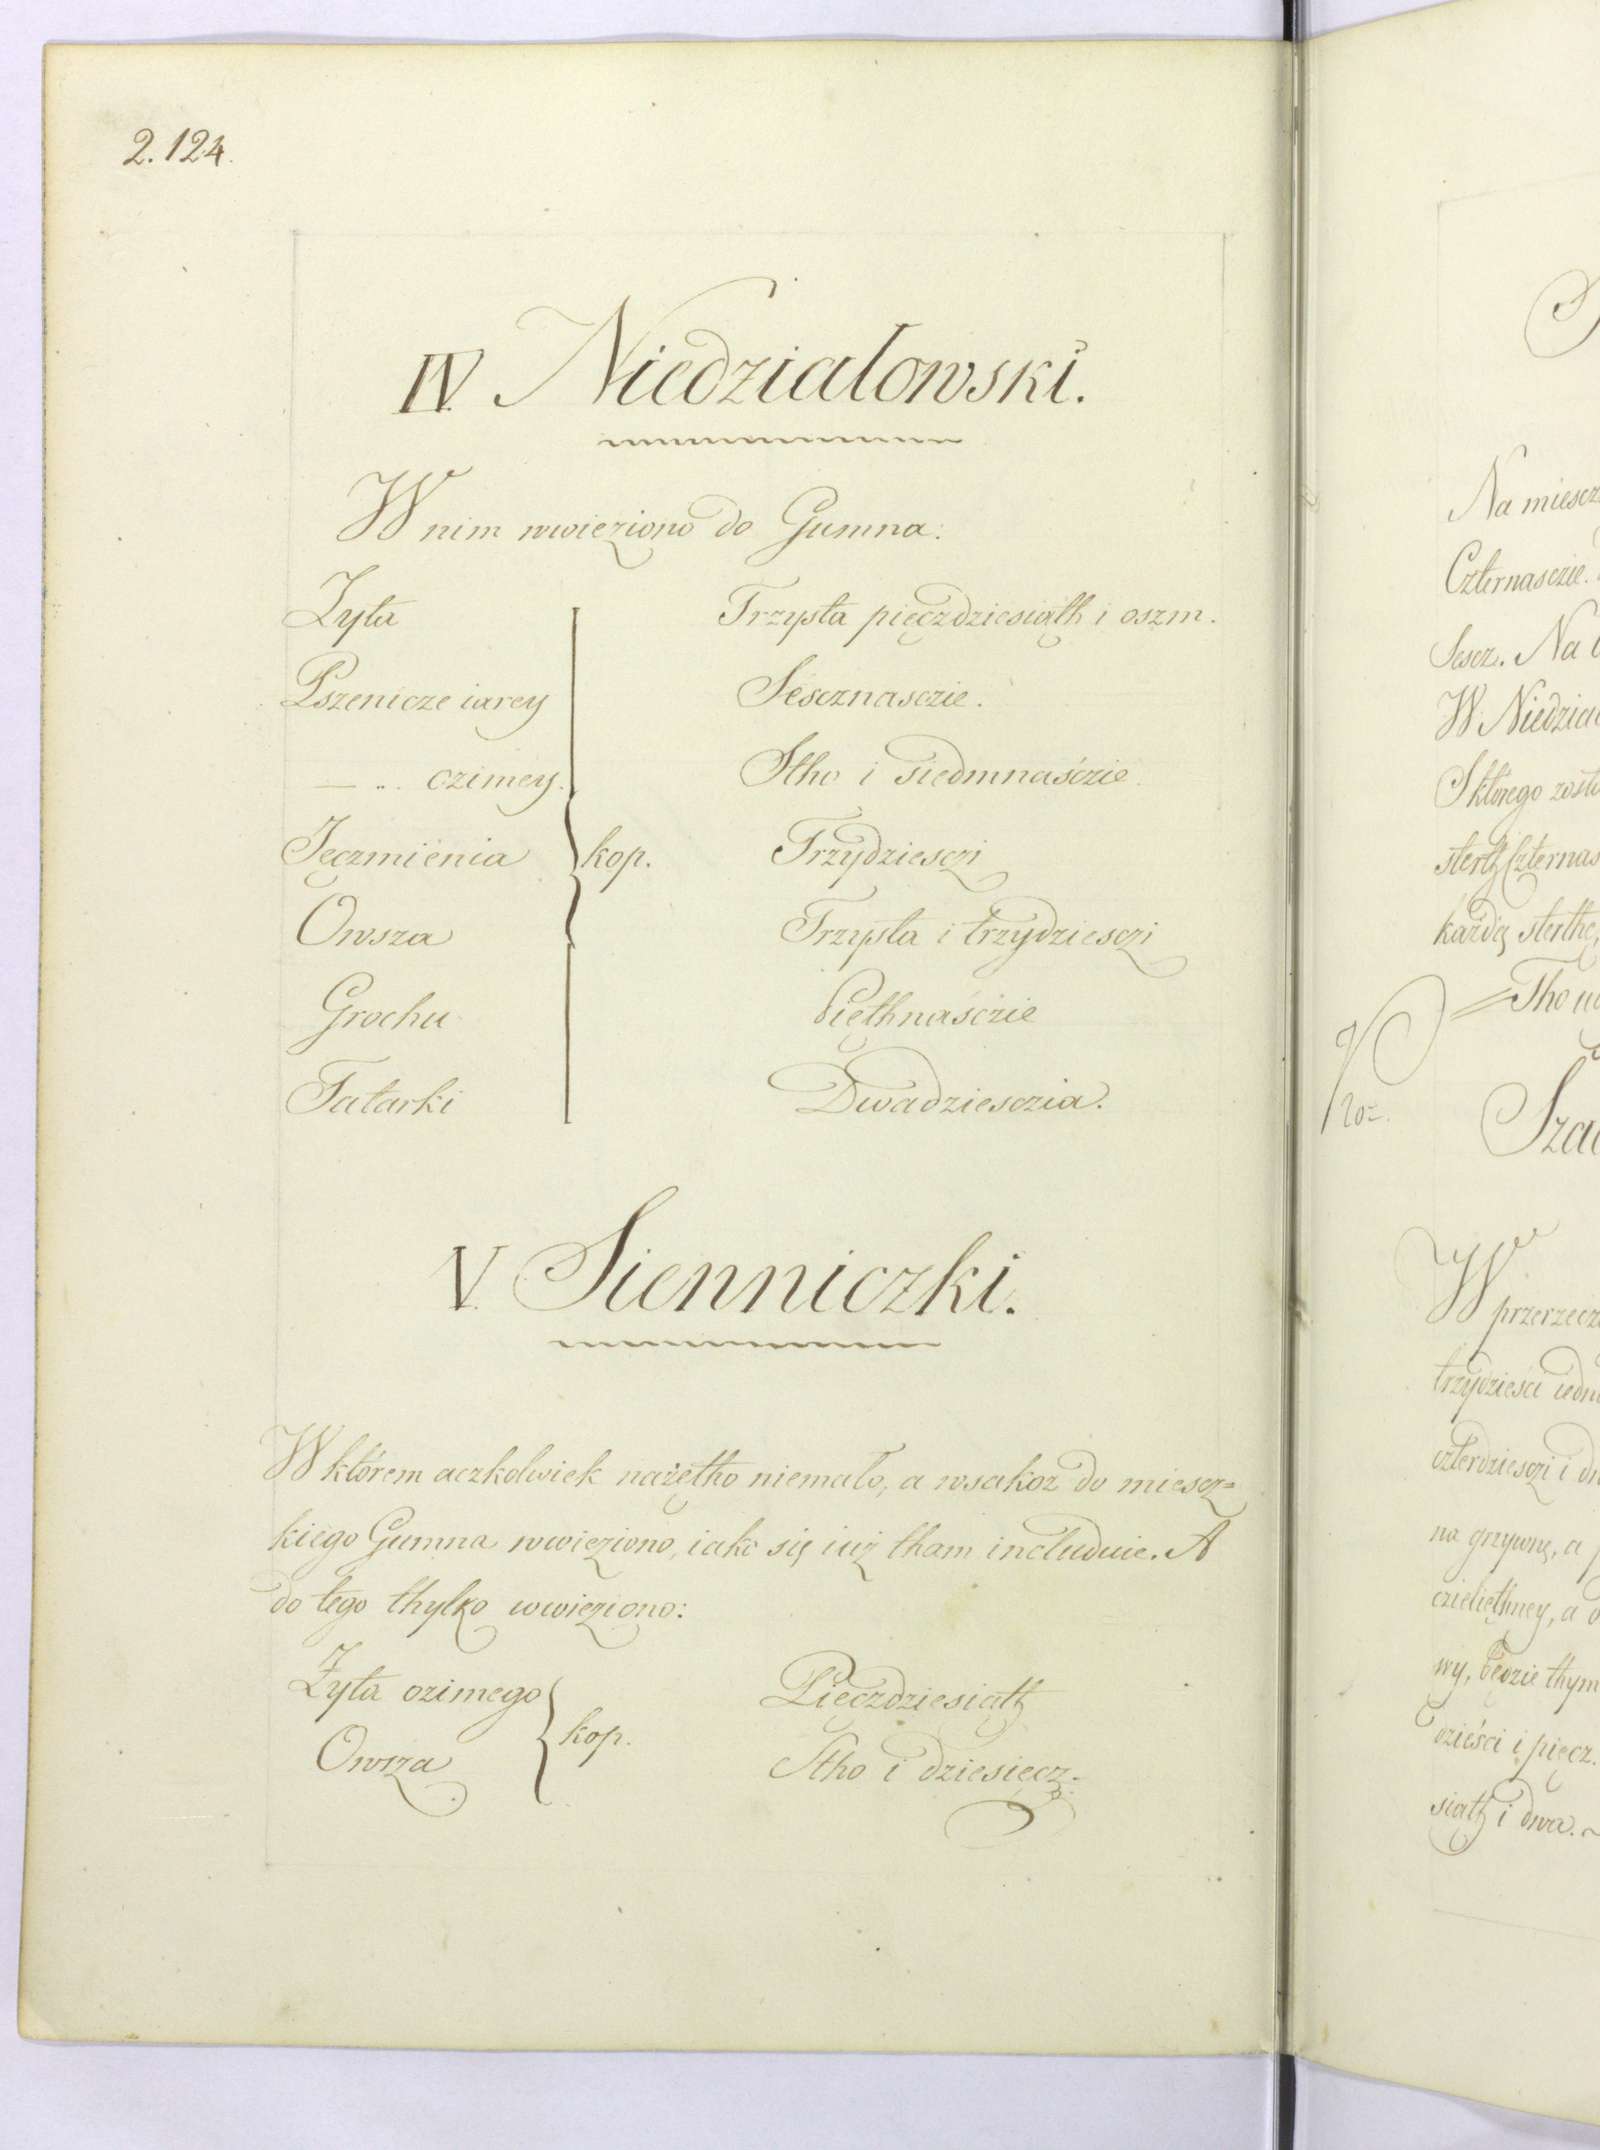 2.124.
IV. Niedzialowski.
W nim wwieziono do Gumna:
Żyta Trzysta pięczdziesiąth i oszm.
Pszenicze iarey Sescznasczie.
— „ . ozimey. Stho i siedmnaśczie.
Jęczmienia kop. Trzydziesczi
Owsza Trzysta i trzydziesczi
Grochu Piethnaśczie
Tatarki Dwadziesczia.
V. Sienniczki.
W którem aczkolwiek nażętho niemało, a wsakoz do miescz=
kiego Gumna wwieziono, iako się iuż tham includuie. A
do tego thylko wwieziono:
Żyta ozimego kop. Pięczdziesiąth
Owsza Stho i dziesięcz.
Na miescz
Czternasczie.
Sescz. Na
W Niedzial
S którego zost
sterth Czternas
każdą sterthę,
Tho
Sza
W przerzecz
trzydzieści iedn
czterdziesczi i
na grzywnę, a
czieliethney, a
wy, będzie thym
dzieści i pięcz.
siąth i dwa.